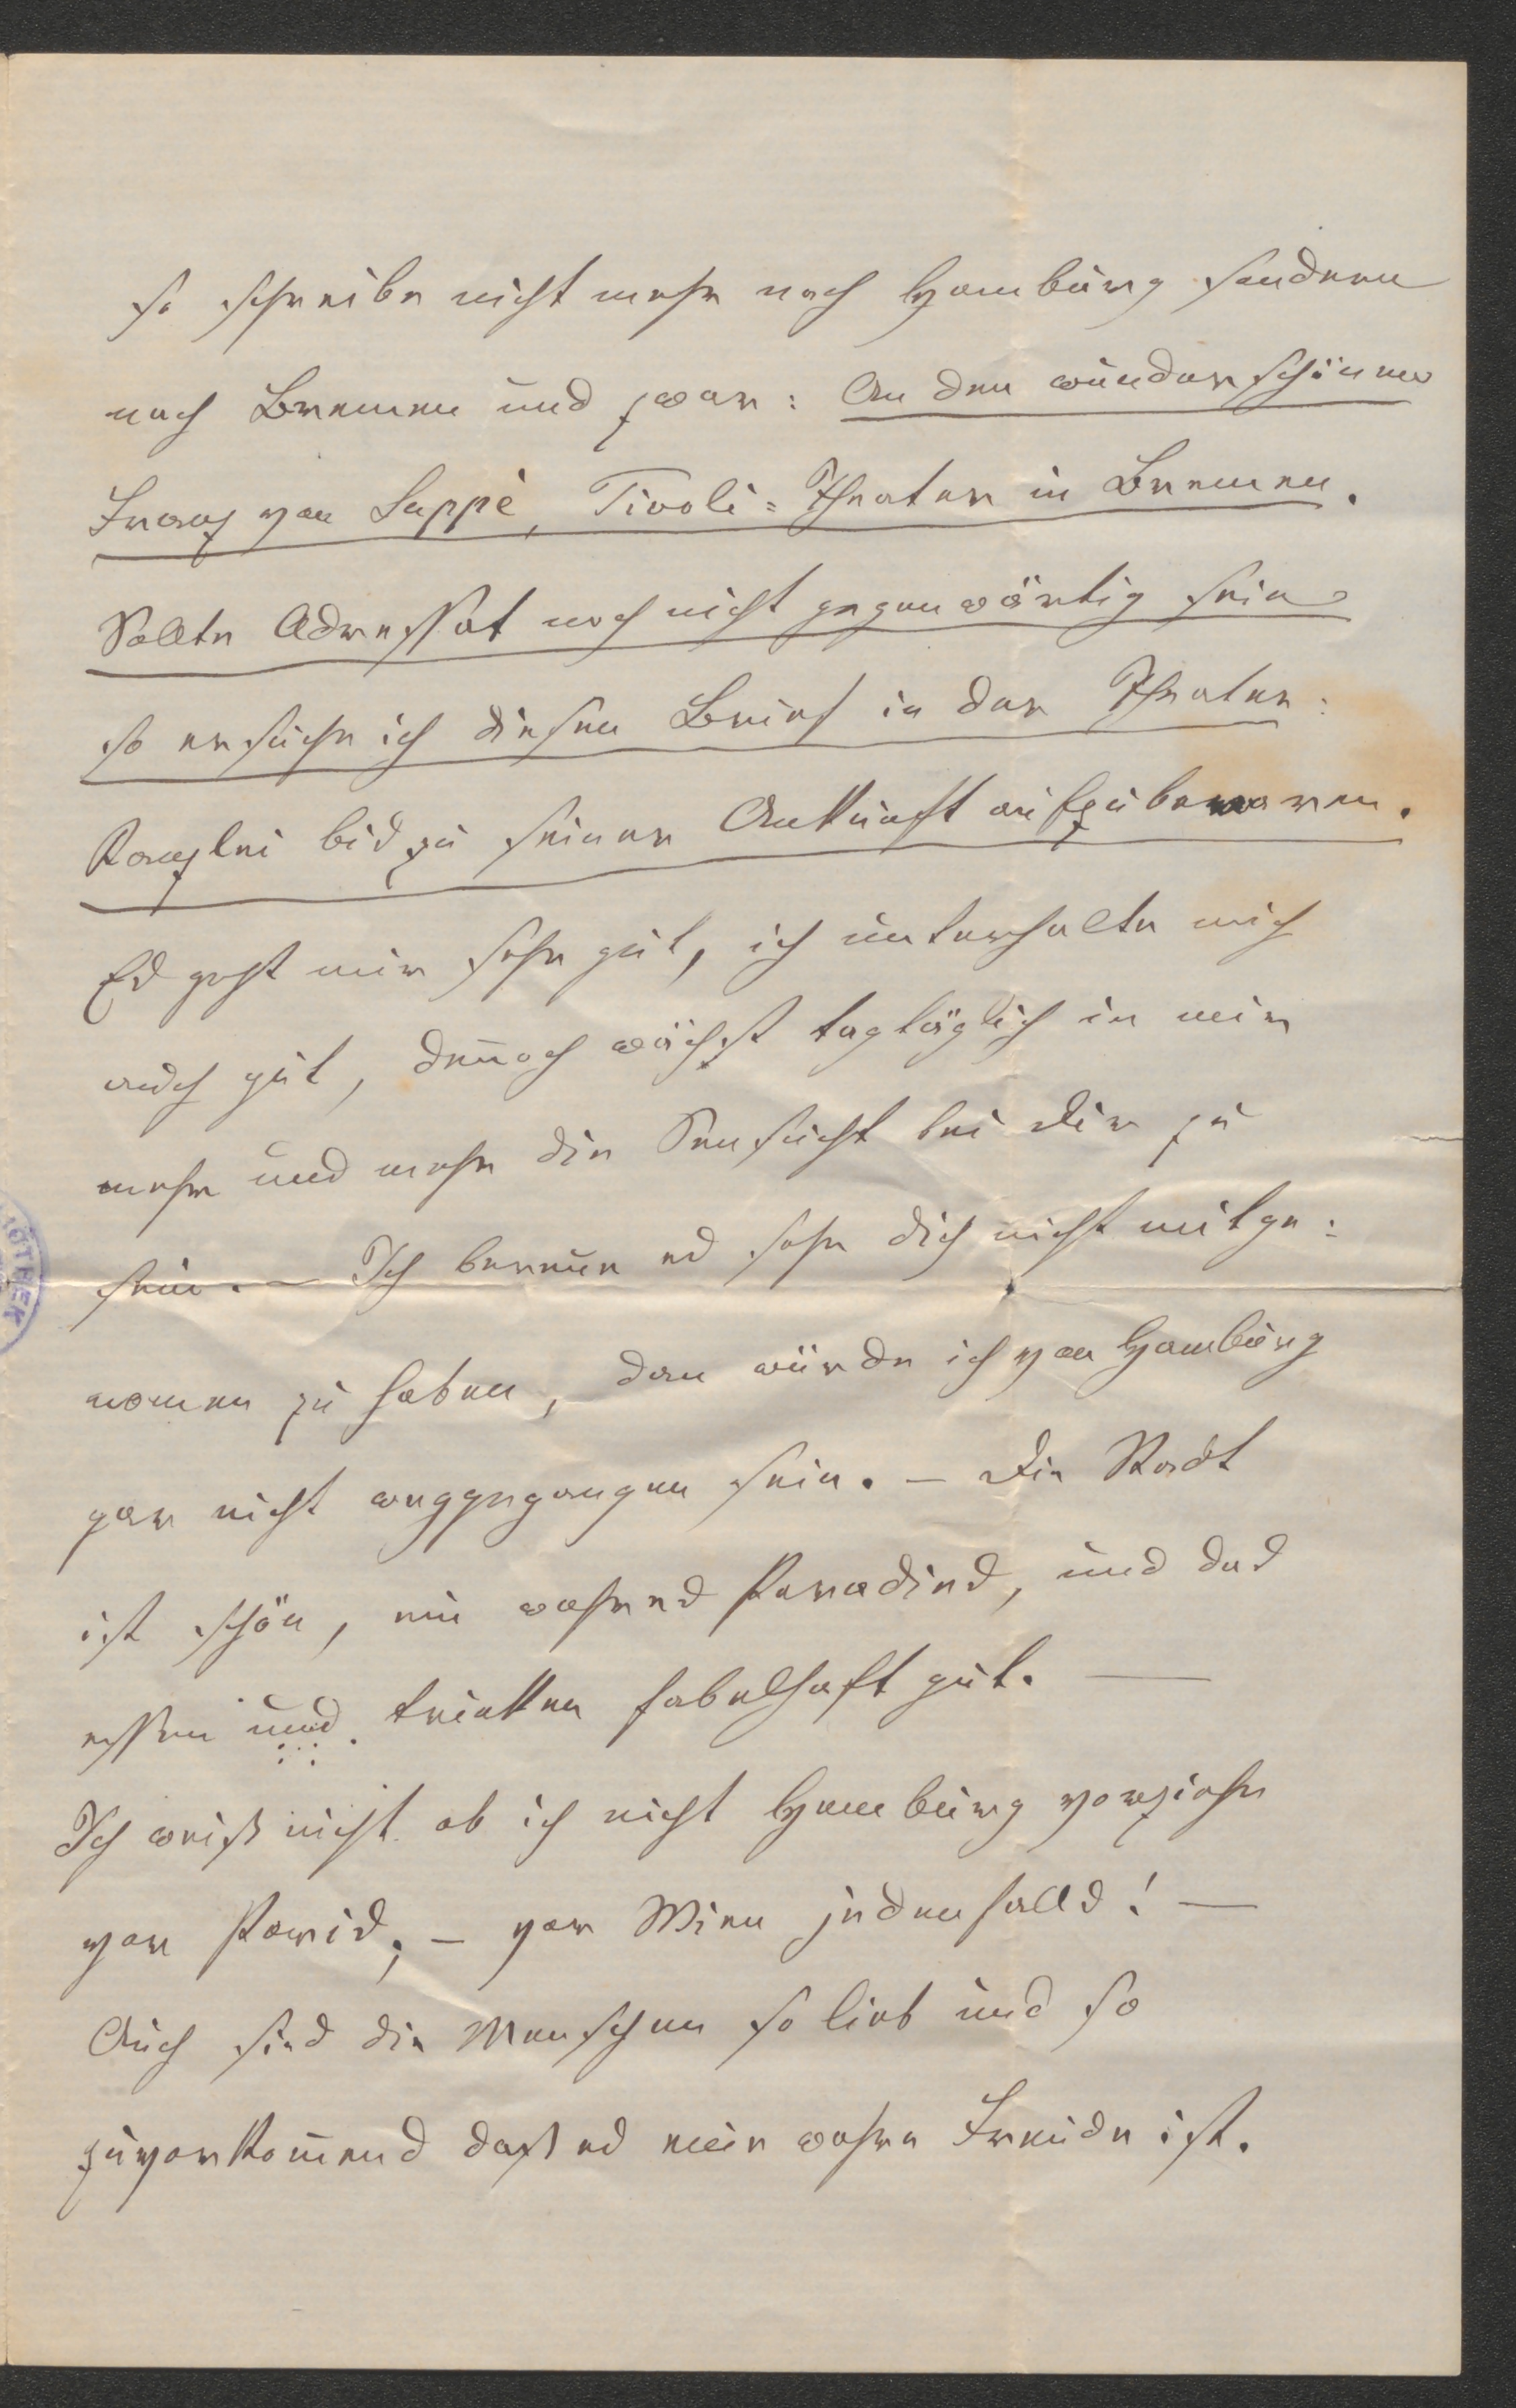 so schreibe nicht mehr nach Hamburg sondern
nach Bremen und zwar: An den wunderschönen
Franz von Suppè, Tivoli=Theater in Bremen.
Sollte Adressat noch nicht gegenwärtig sein
so ersuche ich diesen Brief in der Theater:
Kanzlei bis zu seiner Ankunft aufzubewaren.
Es geht mir sehr gut, ich unterhalte mich
auch gut, den̄och wächst tagtäglich in mir
mehr und mehr die Sensucht bei Dir zu
sein. — Ich bereue es sehr dich nicht mitge:
nomen zu haben, dan würde ich von Hamburg
gar nicht weggegangen sein. — Die Stadt
ist schön, ein wahres Paradies, und das
essen und trinken fabelhaft gut. —
Ich weiß nicht ob ich nicht Hamburg vorziehe
vor Paris; — vor Wien jedenfalls! —
Auch sind die Menschen so lieb und so
zuvorkom̄end daß es eine wahre Freude ist.